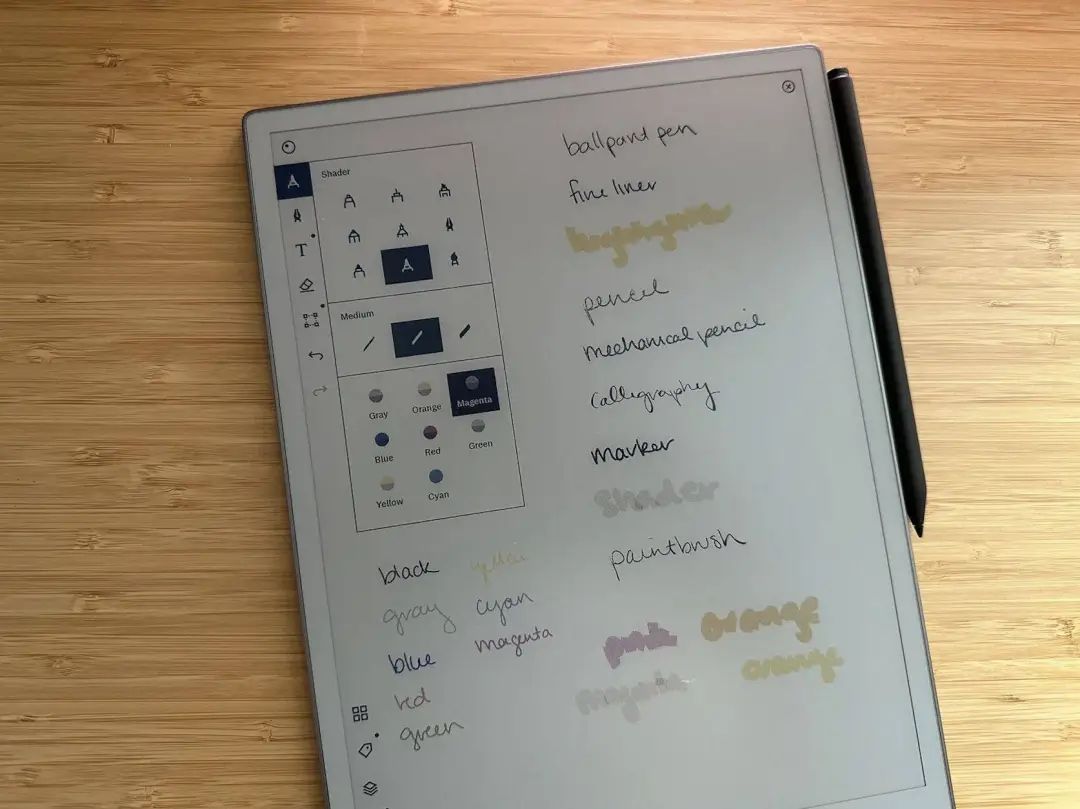 Shader
Medium
Gray Orange Magenta
Blue Red Green
Yellow Cyan
T
ballpoint pen
fine liner
pencil
mechanical pencil
calligraphy
marker
shader
paintbrush
black yellow
gray cyan
blue magenta
red
green
pink orange
magenta orange